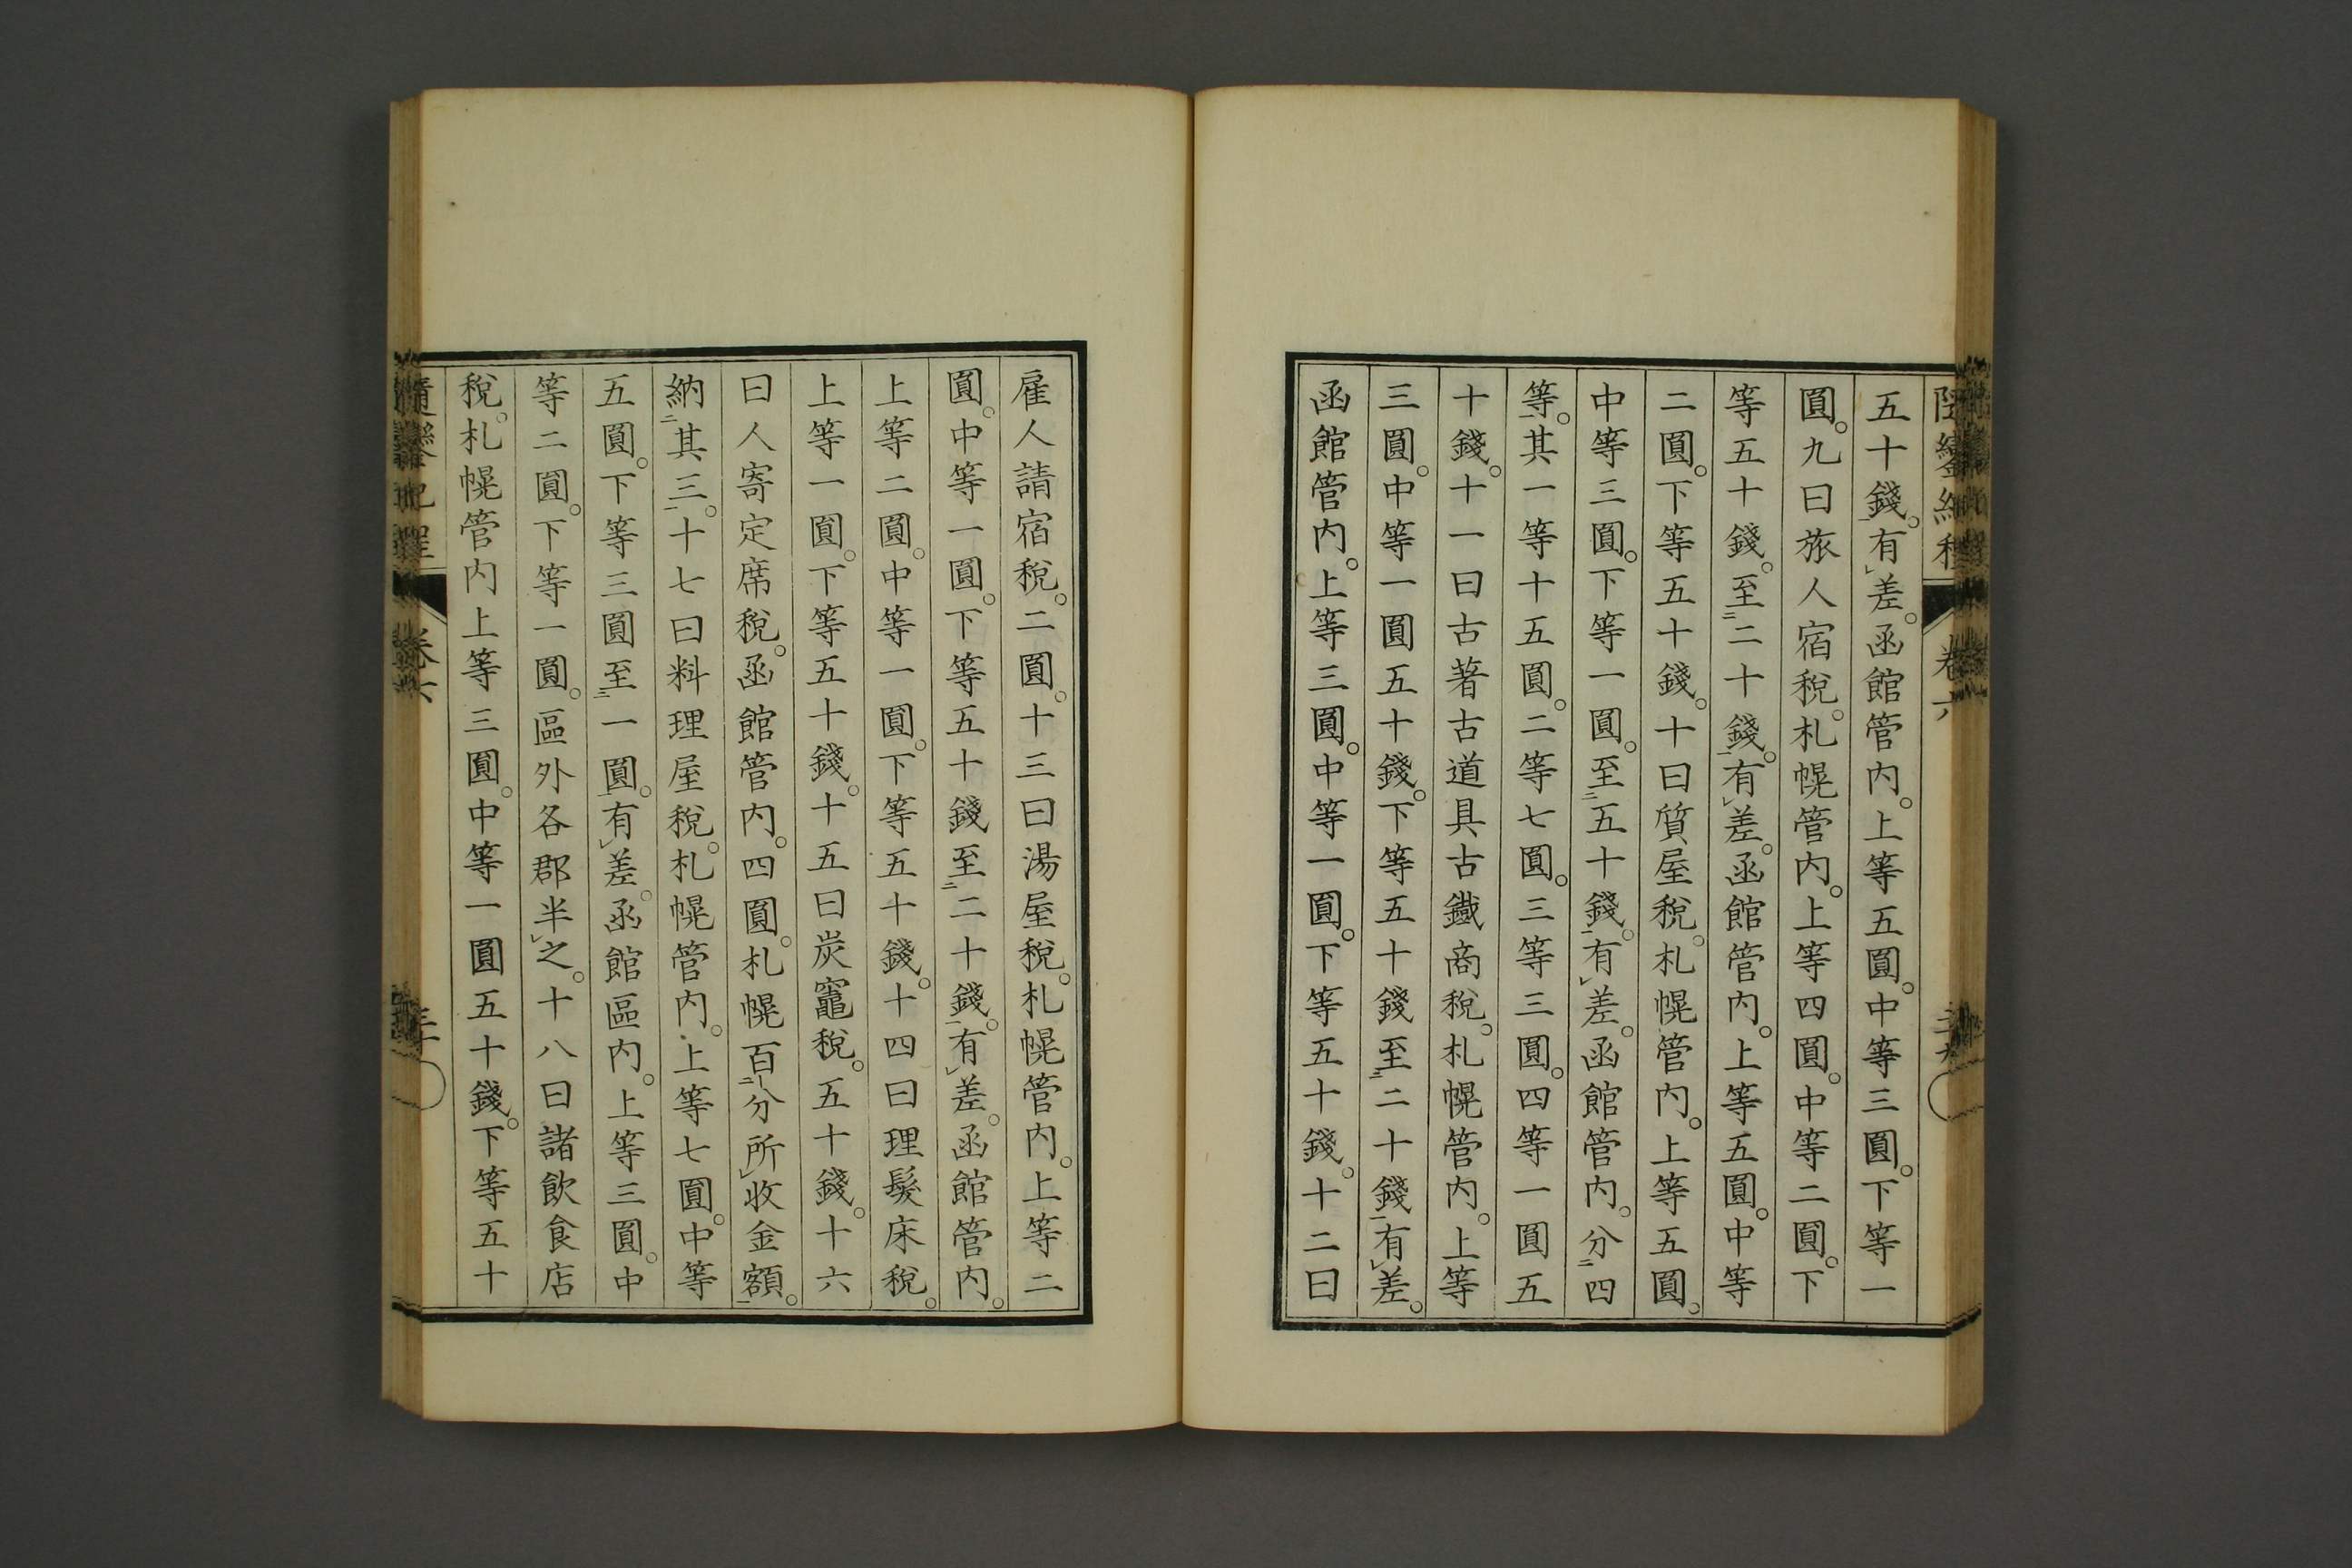 五十錢。有差。函館管内。上等五圓。中等三圓。下等一
圓。九曰旅人宿稅。札幌管内。上等四圓。中等二圓。下
等五十錢。至二十錢。有差。函館管内。上等五圓。中等
二圓。下等五十錢。十曰質屋稅。札幌管内。上等五圓。
中等三圓。下等一圓。至五十錢。有差。函館管内。分四
等。其一等十五圓。二等七圓。三等三圓。四等一圓五
十錢。十一曰古著古道具古鐵商稅。札幌管内。上等
三圓。中等一圓五十錢。下等五十錢至二十錢有差。
函館管内。上等三圓。中等一圓。下等五十錢。十二曰
雇人請宿稅。二圓。十三曰湯屋稅。札幌管内。上等二
圓。中等一圓。下等五十錢至二十錢。有差。函館管内。
上等二圓。中等一圓。下等五十錢。十四曰理髮床稅。
上等一圓。下等五十錢。十五曰炭竈稅。五十錢。十六
曰人寄定席稅。函館管内。四圓。札幌百分所收金額。
納其三。十七曰料理屋稅。札幌管内。上等七圓。中等
五圓。下等三圓至一圓。有差。函館區内。上等三圓。中
等二圓。下等一圓。區外各郡半之。十八曰諸飲食店
稅。札幌管内上等三圓。中等一圓五十錢。下等五十
卷六